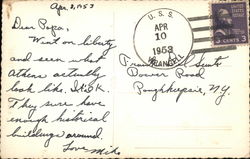 Apr. 9, 1953
Dear Pops,
Went on liberty
and seen what
Athens actually
look like. It's O.K.
They sure have
enough historical
buildings around.
Love, Mike
U. S. S.
APR
10
1953
3 CENTS 3
Road
Poughkeepsie, N.Y.